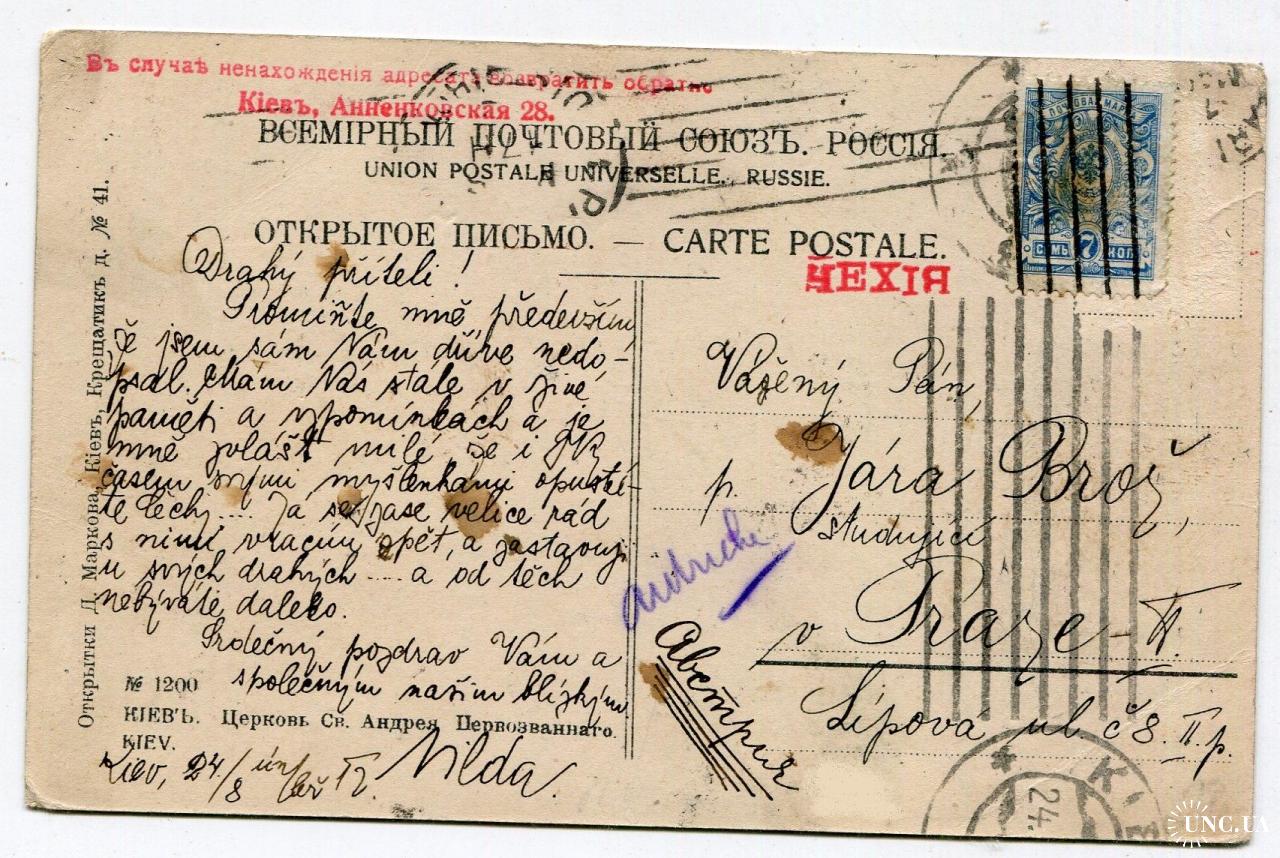 Въ случаѣ ненахожденія адресата возвратить обратно
Кіевъ, Анненковская 28.
ВСЕМІРНЫЙ ПОЧТОВЫЙ СОЮЗЪ. РОССІЯ.
UNION POSTALE UNIVERSELLE. RUSSIE.
ОТКРЫТОЕ ПИСЬМО. — CARTE POSTALE.
ЧЕХІЯ
ПОЧТОВАЯ МАР
СЕМЬ 7 КОП
Drahý příteli!
Promiňte mně především
že jsem sám Vám dříve nedo-
psal. Mám Vás stále v živé
paměti a vzpomínkách a je
mně zvlášť milé, že i
časem svými myšlenkami opustí-
te Čechy.... Já se zase velice rád
s nimi vracím zpět, a zastavuji
u svých drahých .... a od těch
nebýváte daleko.
Srdečný pozdrav Vám a
společným našim blízkým
Vilda.
Kiev, 24/8
Vážený Pán,
p. Jára Brož,
studující
v Praze-II.
Lípová ul. č 8. II. p.
autriche
Австрия
Открытки Д. Маркова, Кіевъ, Крещатикъ д. № 41.
№ 1200
КІЕВЪ. Церковь Св. Андрея Первозваннаго.
KIEV.
24.
UNC.UA